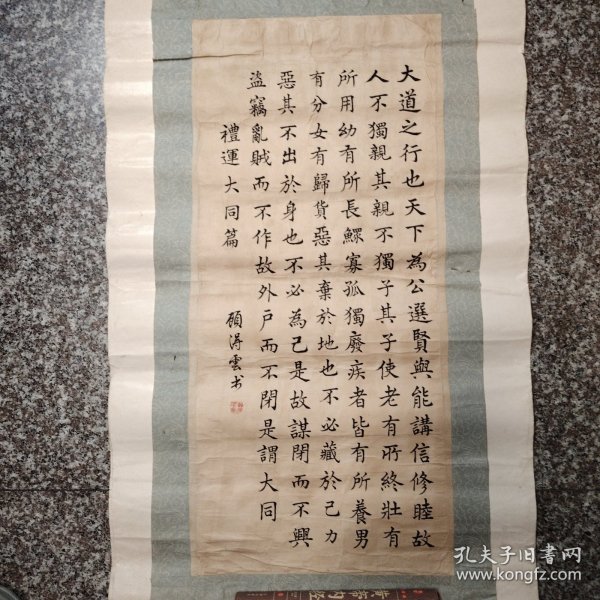 大道之行也天下為公選賢與能講信修睦故
人不獨親其親不獨子其子使老有所終壯有
所用幼有所長鰥寡孤獨廢疾者皆有所養男
有分女有歸貨惡其棄於地也不必藏於己力
惡其不出於身也不必為己是故謀閉而不興
盜竊亂賊而不作故外戶而不閉是謂大同
禮運大同篇
雲书
黄帝内经
孔夫子旧书网
www.kongfz.com